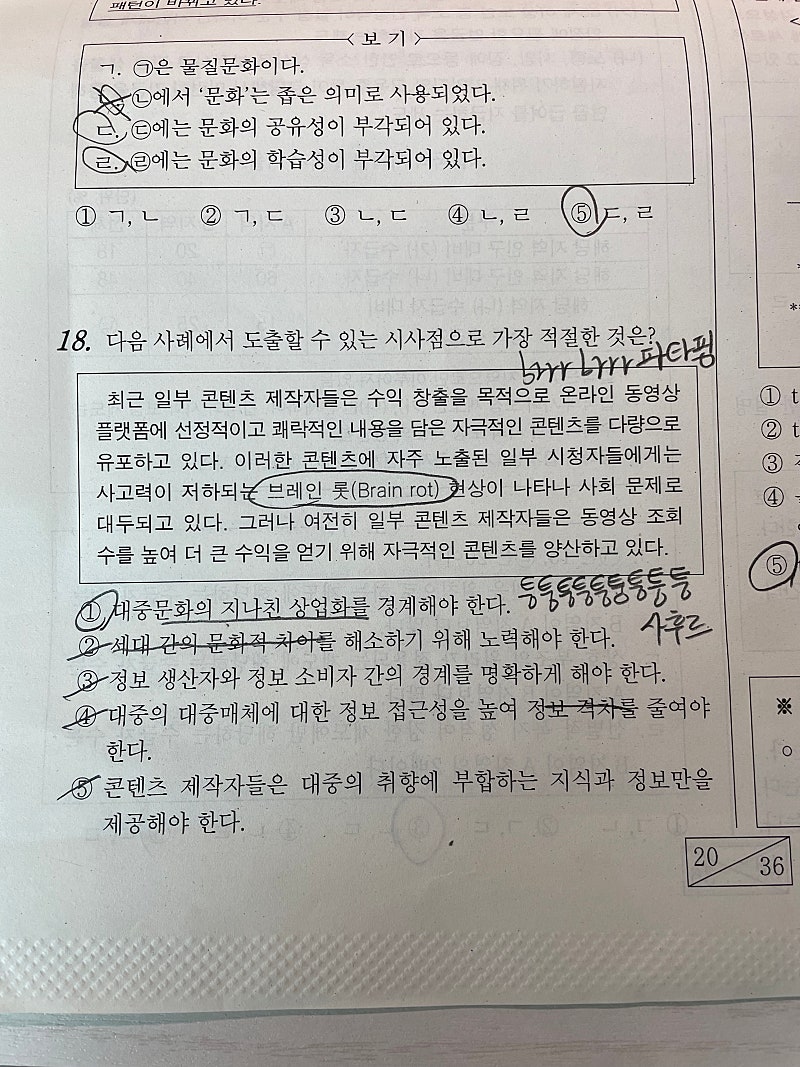 패턴이 바뀌고 있다.
<보 기>
ㄱ. ㉠은 물질문화이다.
ㄴ. ㉡에서 ‘문화’는 좁은 의미로 사용되었다.
ㄷ. ㉢에는 문화의 공유성이 부각되어 있다.
ㄹ. ㉣에는 문화의 학습성이 부각되어 있다.
① ㄱ, ㄴ ② ㄱ, ㄷ ③ ㄴ, ㄷ ④ ㄴ, ㄹ ⑤ ㄷ, ㄹ
18. 다음 사례에서 도출할 수 있는 시사점으로 가장 적절한 것은?
파타핌
최근 일부 콘텐츠 제작자들은 수익 창출을 목적으로 온라인 동영상
플랫폼에 선정적이고 쾌락적인 내용을 담은 자극적인 콘텐츠를 다량으로
유포하고 있다. 이러한 콘텐츠에 자주 노출된 일부 시청자들에게는
사고력이 저하되는 브레인 롯(Brain rot) 현상이 나타나 사회 문제로
대두되고 있다. 그러나 여전히 일부 콘텐츠 제작자들은 동영상 조회
수를 높여 더 큰 수익을 얻기 위해 자극적인 콘텐츠를 양산하고 있다.
① 대중문화의 지나친 상업화를 경계해야 한다.
퉁퉁퉁퉁퉁퉁퉁퉁퉁
사후르
② 세대 간의 문화적 차이를 해소하기 위해 노력해야 한다.
③ 정보 생산자와 정보 소비자 간의 경계를 명확하게 해야 한다.
④ 대중의 대중매체에 대한 정보 접근성을 높여 정보 격차를 줄여야
한다.
⑤ 콘텐츠 제작자들은 대중의 취향에 부합하는 지식과 정보만을
제공해야 한다.
① t
②
③
④
⑤
※
○
20 36